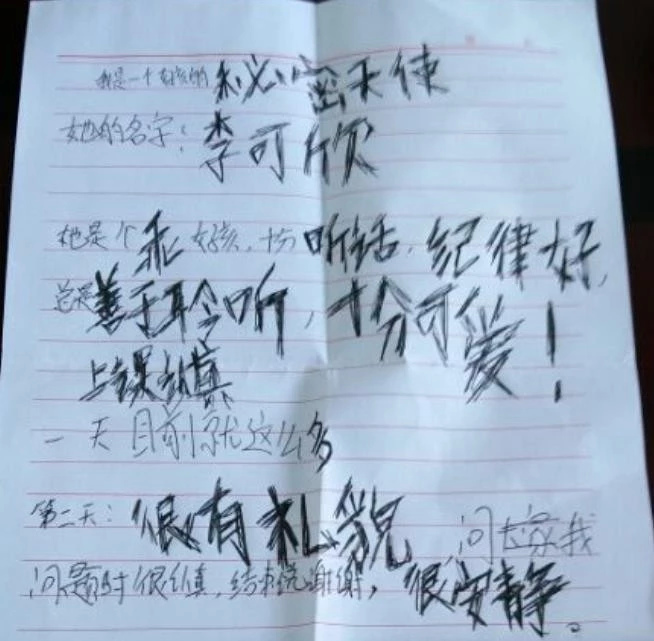 我是一个女孩的秘密天使
她的名字：李可欣
她是个乖女孩，十分听话，纪律好，
总是善于聆听，十分可爱！
上课认真
一天目前就这么多
第二天：很有礼貌，问应该我
问题时很认真，结束说谢谢，很安静。